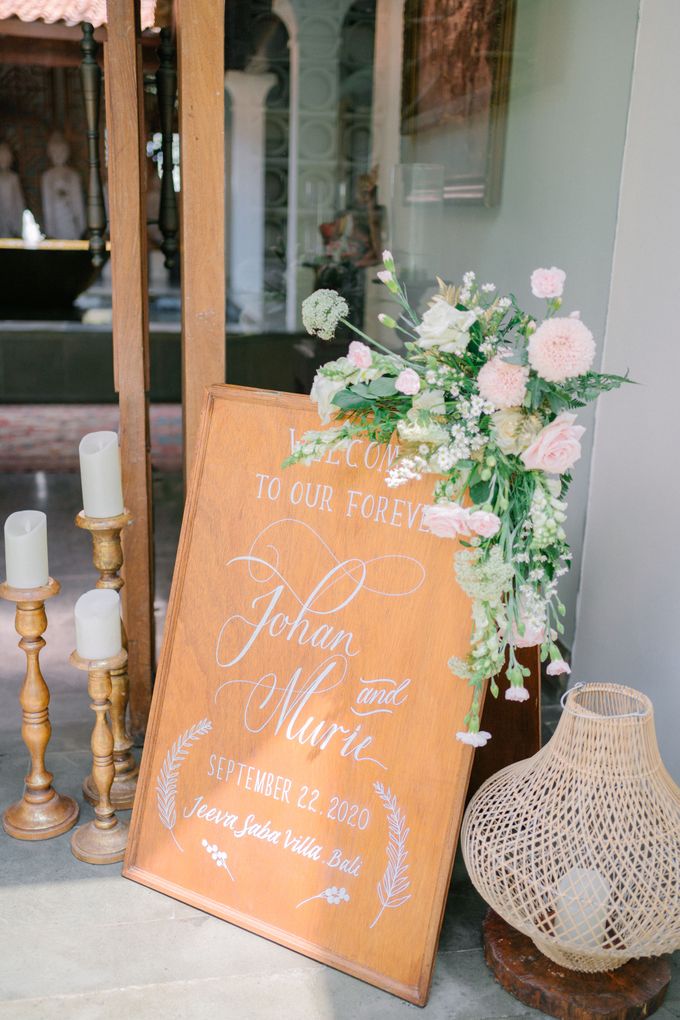 WELCOME
TO OUR FOREVER
Johan
and
Murie
SEPTEMBER 22, 2020
Jeeva Saba Villa, Bali